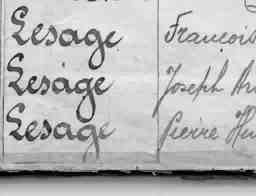 Lesage François
Lesage Joseph
Lesage Pierre